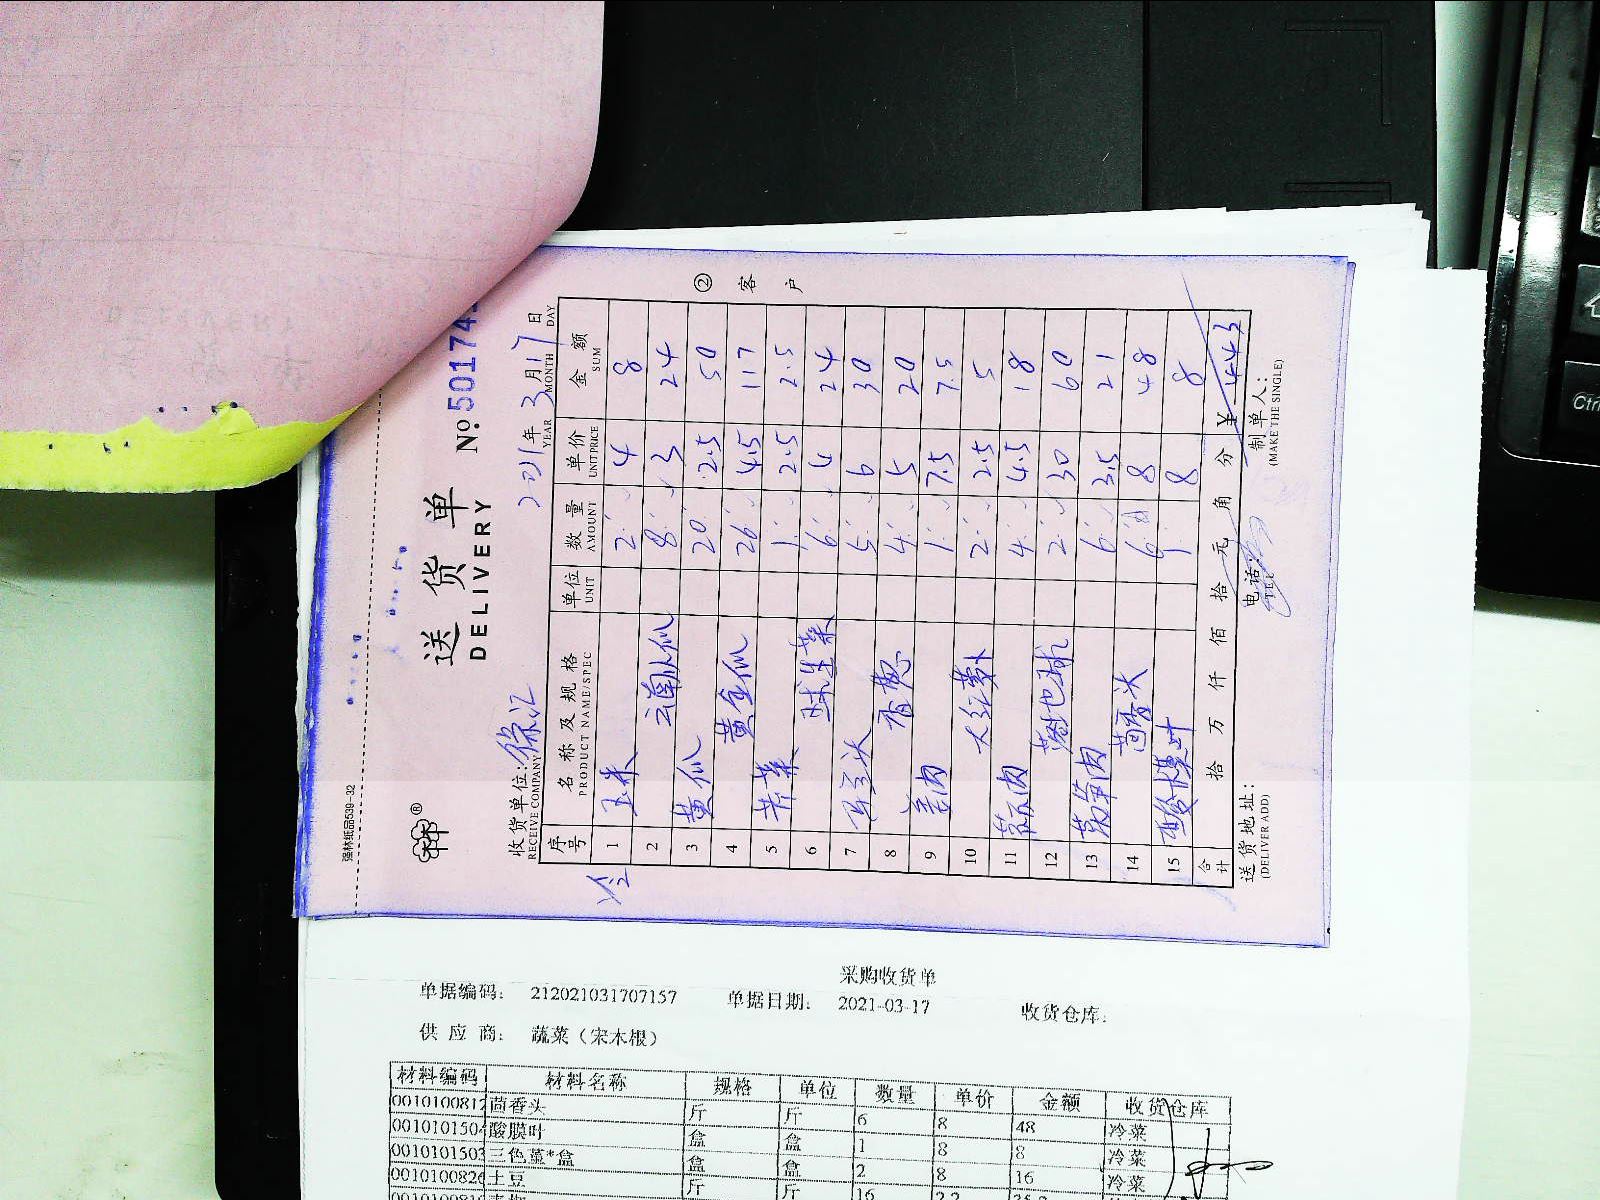 强林纸品539-32
送货单
DELIVERY
№ 50174
收货单位: 徐汇
RECEIVE COMPANY
2021年 3月 17日
YEAR MONTH DAY
② 客户
序号 名称及规格 单位 数量 单价 金额
PRODUCT NAME/SPEC UNIT AMOUNT UNIT PRICE SUM
1 玉米 2 4 8
2 8 3 24
3 黄瓜 20 2.5 50
4 26 4.5 117
5 芹菜 1 2.5 2.5
6 球生菜 6 4 24
7 5 6 30
8 香葱 4 5 20
9 姜肉 1 7.5 7.5
10 大红萝卜 2 2.5 5
11 4 4.5 18
12 2 30 60
13 莴笋肉 6 3.5 21
14 茴香头 6 8 48
15 酸膜叶 1 8 8
合计 拾 万 仟 佰 拾 元 角 分 ¥ 443
送货地址:
(DELIVER ADD)
电话:
制单人:
(MAKE THE SINGLE)
采购收货单
单据编码: 212021031707157 单据日期: 2021-03-17 收货仓库:
供应商: 蔬菜（宋木根）
材料编码 材料名称 规格 单位 数量 单价 金额 收货仓库
001010081 茴香头 斤 斤 6 8 48 冷菜
001010150 酸膜叶 盒 盒 1 8 8 冷菜
0010101503 三色堇*盒 盒 盒 2 8 16 冷菜
001010082 土豆 斤 斤 16 2.2 冷菜
Ctrl